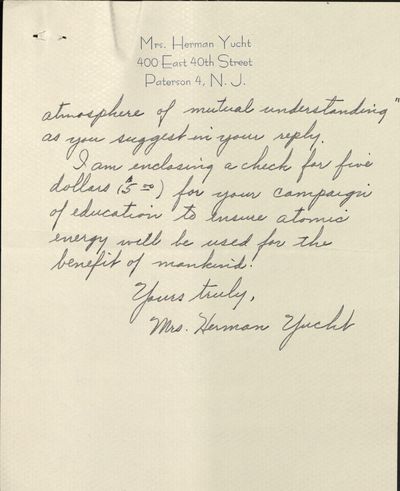 Mrs. Herman Yucht
400 East 40th Street
Paterson 4, N. J.
atmosphere of mutual understanding"
as you suggest in your reply.
I am enclosing a check for five
dollars ($5 00) for your campaign
of education to insure atomic
energy will be used for the
benefit of mankind.
Yours truly,
Mrs. Herman Yucht